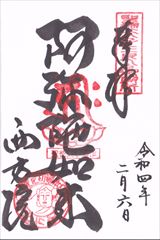 奉拝
阿弥陀如来
西方院
令和四年
二月六日